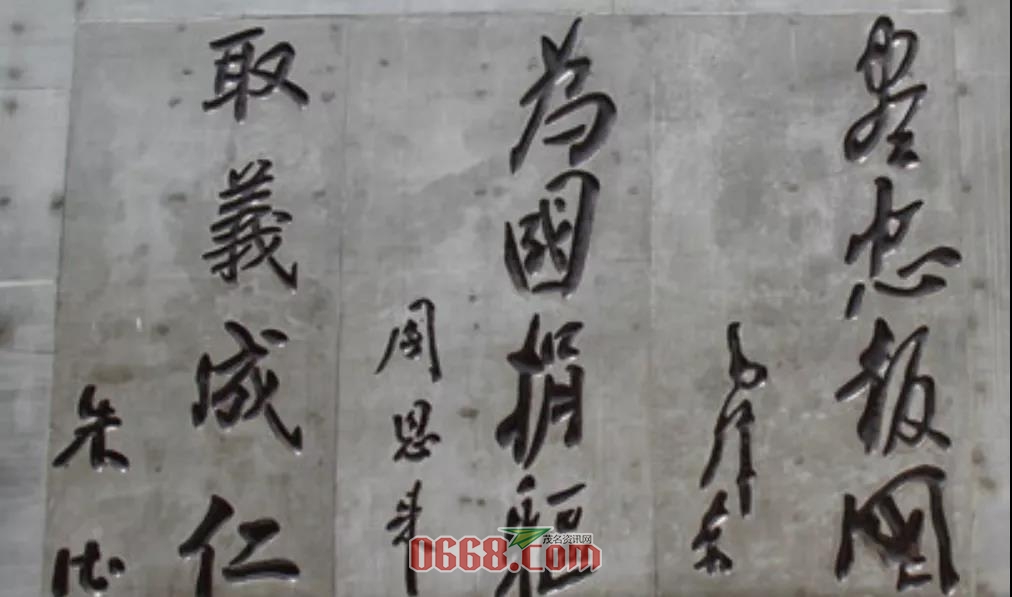 尽忠报國
毛泽东
为國捐躯
周恩来
取義成仁
朱德
茂名资讯网
0668.com